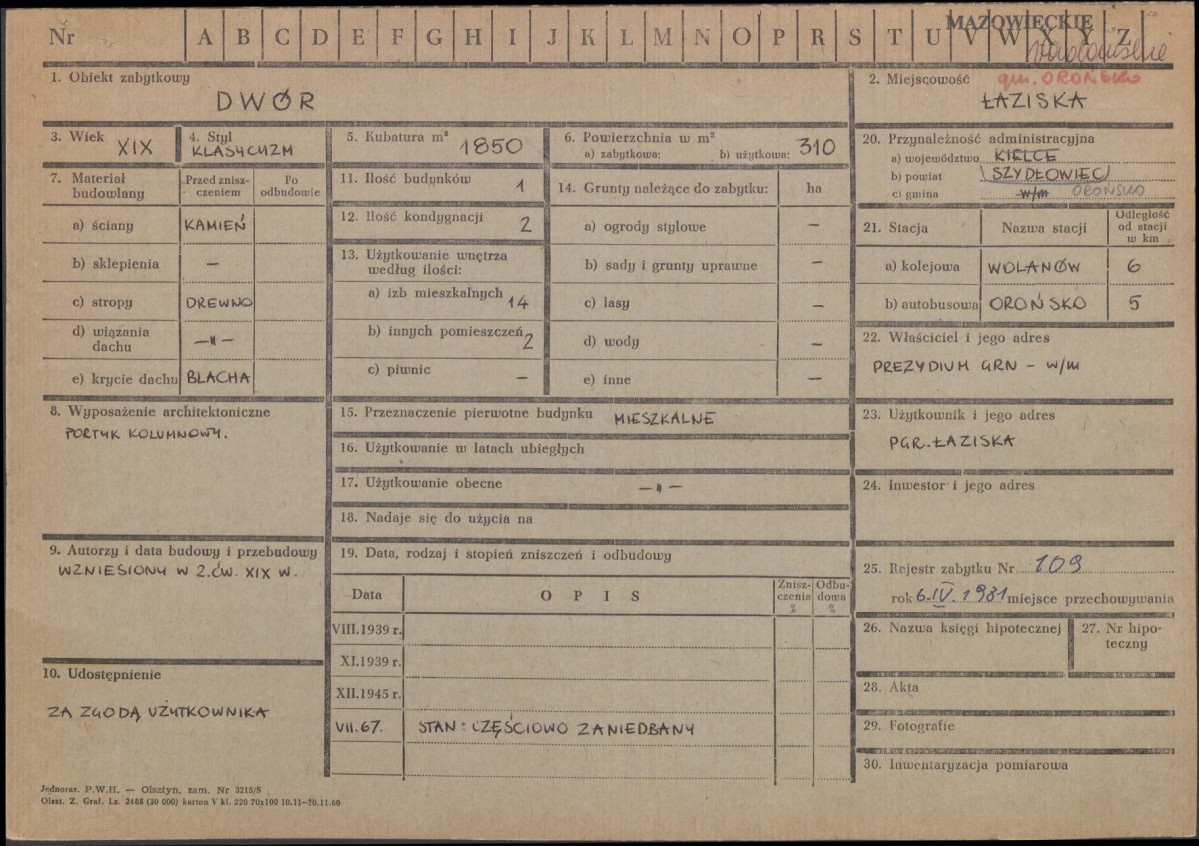 Nr A B C D E F G H I J K L M N O P R S T U V W X Y Z
MAZOWIECKIE
1. Obiekt zabytkowy
DWÓR
2. Miejscowość gm. OROŃSKO
ŁAZISKA
3. Wiek XIX
4. Styl
KLASYCYZM
5. Kubatura m³ 1850
6. Powierzchnia w m²
a) zabytkowa: b) użytkowa: 310
20. Przynależność administracyjna
a) województwo KIELCE
b) powiat SZYDŁOWIEC
c) gmina w/m OROŃSKO
7. Materiał budowlany
Przed zniszczeniem
Po odbudowie
a) ściany KAMIEŃ
b) sklepienia —
c) stropy DREWNO
d) wiązania dachu —„—
e) krycie dachu BLACHA
11. Ilość budynków 1
12. Ilość kondygnacji 2
13. Użytkowanie wnętrza
według ilości:
a) izb mieszkalnych 14
b) innych pomieszczeń 2
c) piwnic —
14. Grunty należące do zabytku: ha
a) ogrody stylowe —
b) sady i grunty uprawne —
c) lasy —
d) wody —
e) inne —
21. Stacja Nazwa stacji Odległość od stacji w km
a) kolejowa WOLANÓW 6
b) autobusowa OROŃSKO 5
22. Właściciel i jego adres
PREZYDIUM GRN – w/m
8. Wyposażenie architektoniczne
PORTYK KOLUMNOWY.
15. Przeznaczenie pierwotne budynku MIESZKALNE
16. Użytkowanie w latach ubiegłych
17. Użytkowanie obecne —„—
18. Nadaje się do użycia na
23. Użytkownik i jego adres
PGR. ŁAZISKA
24. Inwestor i jego adres
9. Autorzy i data budowy i przebudowy
WZNIESIONY W 2. ĆW. XIX W.
19. Data, rodzaj i stopień zniszczeń i odbudowy
Data OPIS Zniszczenia % Odbudowa %
VIII.1939 r.
XI.1939 r.
XII.1945 r.
VII.67. STAN: CZĘŚCIOWO ZANIEDBANY
25. Rejestr zabytku Nr 109
rok 6.IV.1981 miejsce przechowywania
26. Nazwa księgi hipotecznej
27. Nr hipoteczny
10. Udostępnienie
ZA ZGODĄ UŻYTKOWNIKA
28. Akta
29. Fotografie
30. Inwentaryzacja pomiarowa
Jednoraz. P.W.H. — Olsztyn, zam. Nr 3215/S
Olszt. Z. Graf. Lz. 2455 (30 000) karton V kl. 220 70x100 10.11—30.11.60